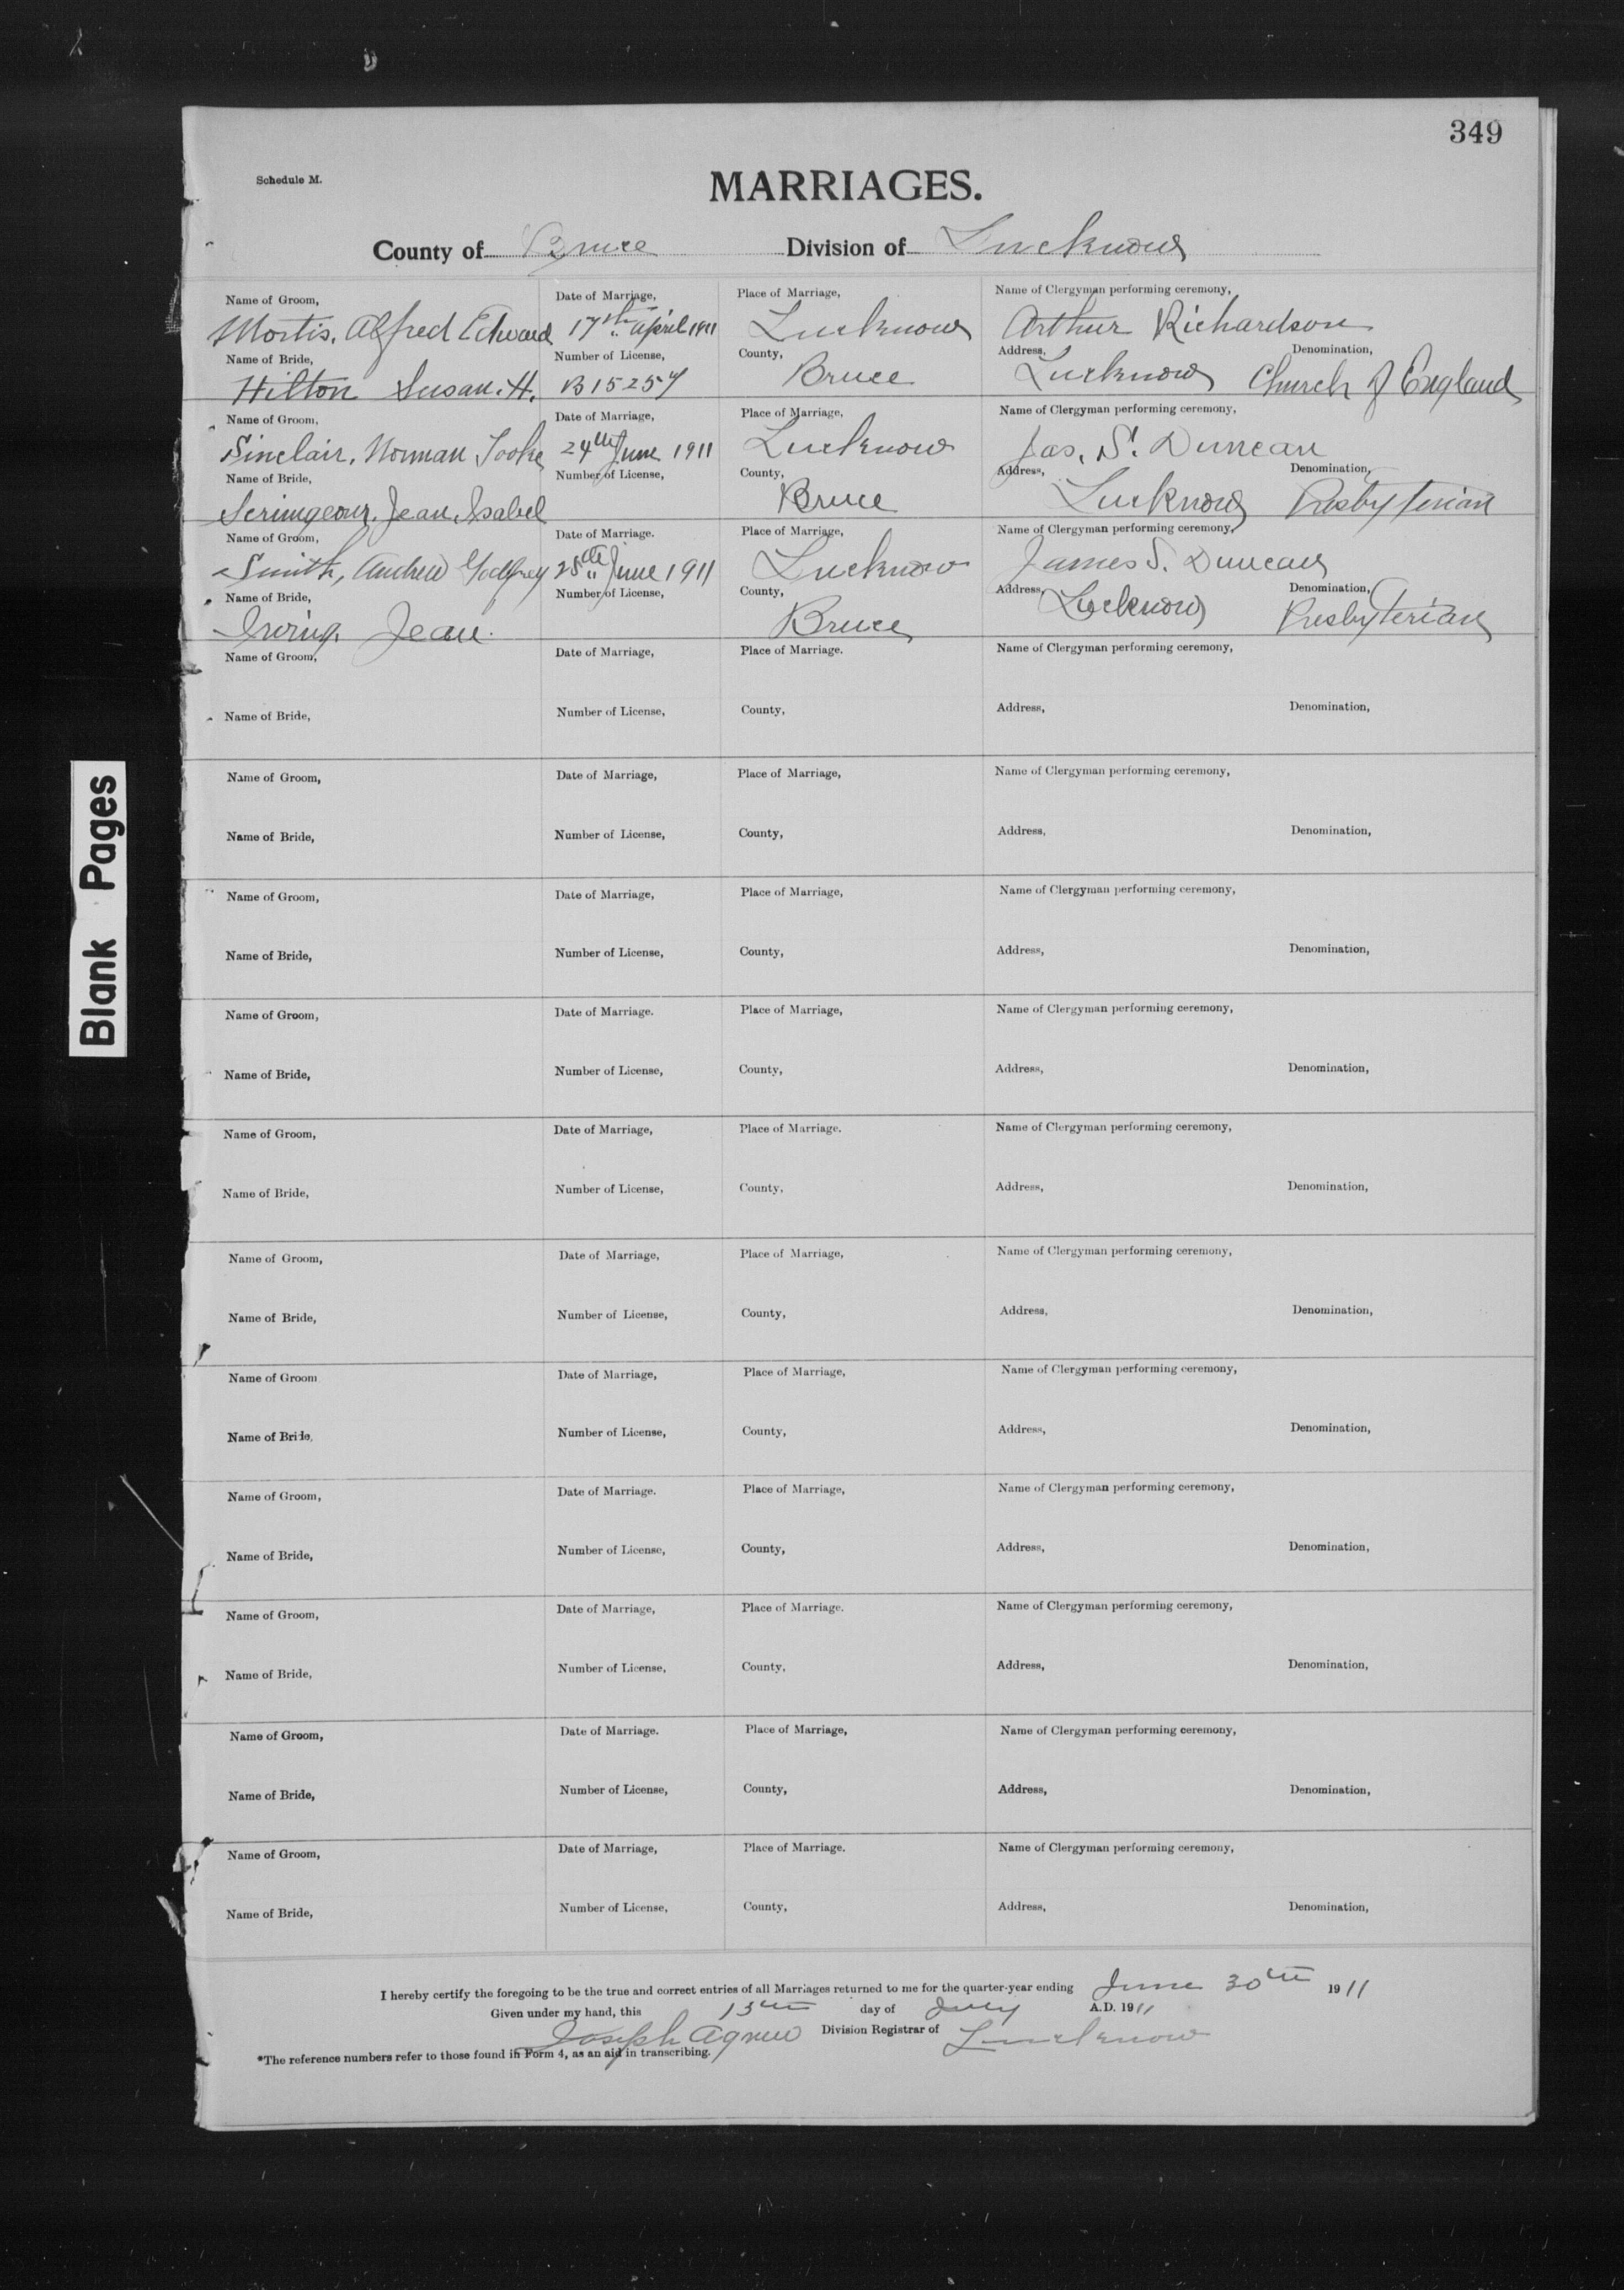 349
Schedule M.
MARRIAGES.
County of Bruce Division of Lucknow
Name of Groom, Date of Marriage, Place of Marriage, Name of Clergyman performing ceremony,
Mortis, Alfred Edward 17th April 1911 Lucknow Arthur Richardson
Name of Bride, Number of License, County, Address, Denomination,
Hilton Susan. H. B15257 Bruce Lucknow Church of England
Name of Groom, Date of Marriage, Place of Marriage, Name of Clergyman performing ceremony,
Sinclair, Norman Tooke 24th June 1911 Lucknow Jas. S. Duncan
Name of Bride, Number of License, County, Address, Denomination,
Scrimgeour, Jean Isabel Bruce Lucknow Presbyterian
Name of Groom, Date of Marriage. Place of Marriage, Name of Clergyman performing ceremony,
Smith, Andrew Godfrey 28th June 1911 Lucknow James S. Duncan
Name of Bride, Number of License, County, Address, Denomination,
Irving, Jean. Bruce Lucknow Presbyterian
Name of Groom, Date of Marriage, Place of Marriage. Name of Clergyman performing ceremony,
Name of Bride, Number of License, County, Address, Denomination,
Name of Groom, Date of Marriage, Place of Marriage, Name of Clergyman performing ceremony,
Name of Bride, Number of License, County, Address, Denomination,
Name of Groom, Date of Marriage, Place of Marriage, Name of Clergyman performing ceremony,
Name of Bride, Number of License, County, Address, Denomination,
Name of Groom, Date of Marriage. Place of Marriage, Name of Clergyman performing ceremony,
Name of Bride, Number of License, County, Address, Denomination,
Name of Groom, Date of Marriage, Place of Marriage. Name of Clergyman performing ceremony,
Name of Bride, Number of License, County, Address, Denomination,
Name of Groom, Date of Marriage, Place of Marriage, Name of Clergyman performing ceremony,
Name of Bride, Number of License, County, Address, Denomination,
Name of Groom Date of Marriage, Place of Marriage, Name of Clergyman performing ceremony,
Name of Bride, Number of License, County, Address, Denomination,
Name of Groom, Date of Marriage. Place of Marriage, Name of Clergyman performing ceremony,
Name of Bride, Number of License, County, Address, Denomination,
Name of Groom, Date of Marriage, Place of Marriage. Name of Clergyman performing ceremony,
Name of Bride, Number of License, County, Address, Denomination,
Name of Groom, Date of Marriage. Place of Marriage, Name of Clergyman performing ceremony,
Name of Bride, Number of License, County, Address, Denomination,
Name of Groom, Date of Marriage, Place of Marriage. Name of Clergyman performing ceremony,
Name of Bride, Number of License, County, Address, Denomination,
I hereby certify the foregoing to be the true and correct entries of all Marriages returned to me for the quarter-year ending June 30th 1911
Given under my hand, this 13th day of July A.D. 1911
Joseph Agnew Division Registrar of Lucknow
*The reference numbers refer to those found in Form 4, as an aid in transcribing.
Blank Pages